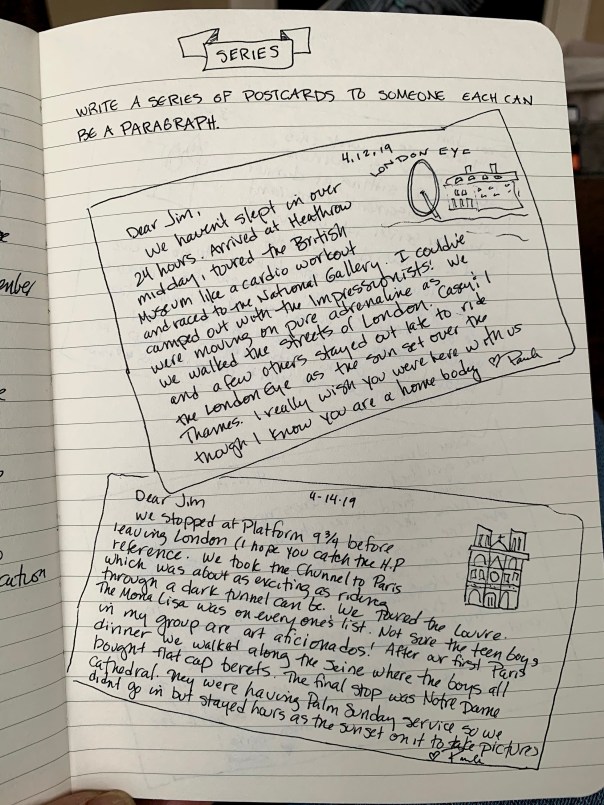 SERIES
WRITE A SERIES OF POSTCARDS TO SOMEONE EACH CAN
BE A PARAGRAPH.
4.12.19
LONDON EYE
Dear Jim,
We haven't slept in over
24 hours. Arrived at Heathrow
midday, toured the British
Museum like a cardio workout
and raced to the National Gallery. I could've
camped out with the Impressionists! We
were moving on pure adrenaline as
we walked the streets of London. Casey & I
and a few others stayed out late to ride
the London Eye as the sun set over the
Thames. I really wish you were here with us
though I know you are a home body ♡ Paula
Dear Jim
4-14-19
We stopped at Platform 9 3/4 before
leaving London (I hope you catch the H.P
reference. We took the Chunnel to Paris
which was about as exciting as riding
through a dark tunnel can be. We toured the Louvre.
The Mona Lisa was on everyone's list. Not sure the teen boys
in my group are art aficionados! After our first Paris
dinner we walked along the Seine where the boys all
bought flat cap berets. The final stop was Notre Dame
Cathedral. They were having Palm Sunday service so we
didnt go in but stayed hours as the sunset on it to take pictures
♡ Paula
ember
action